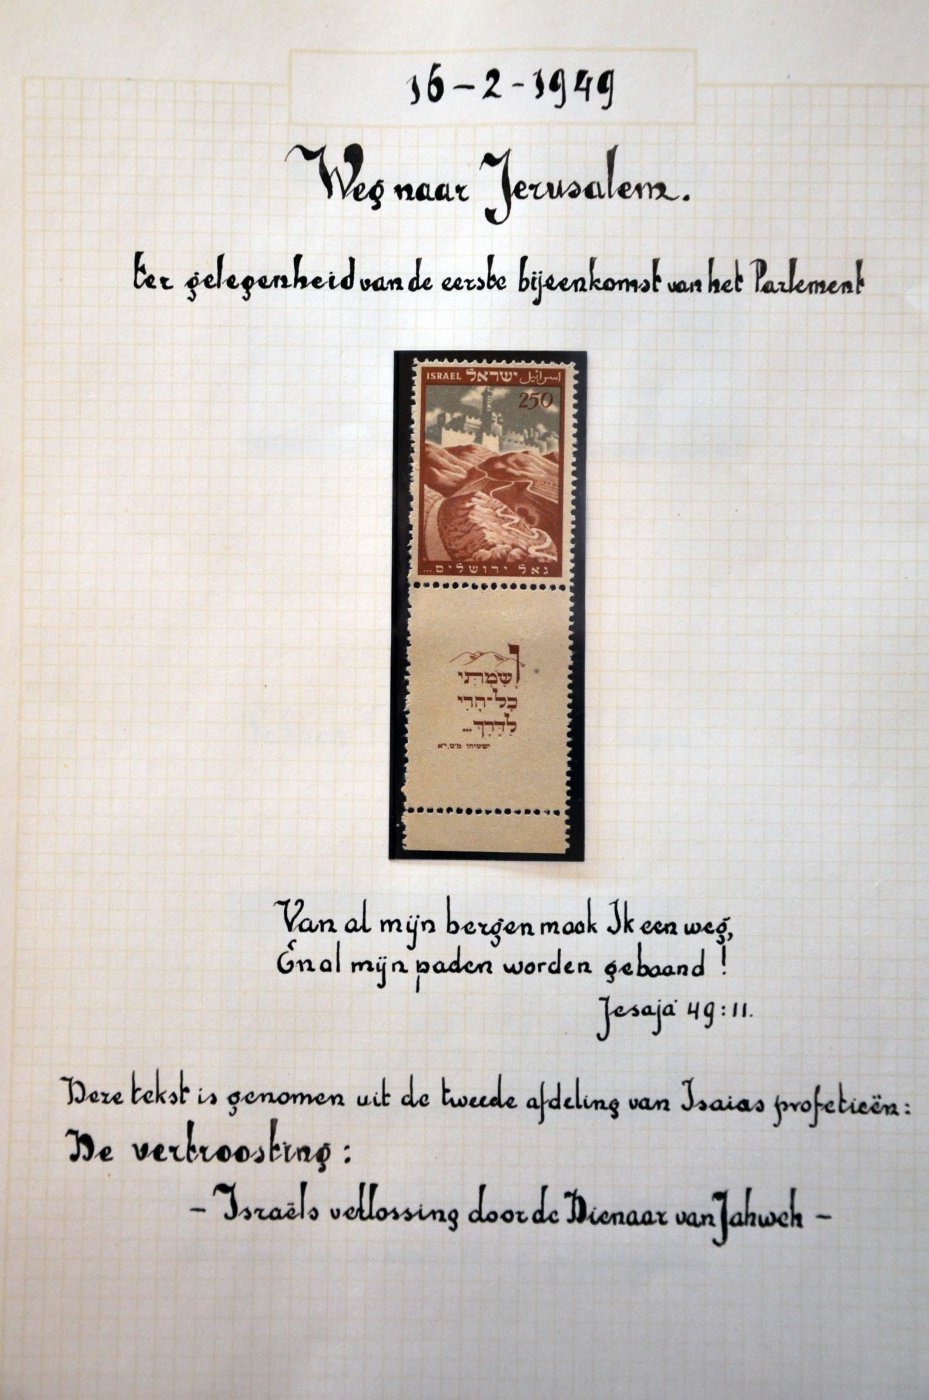 16-2-1949
Weg naar Jerusalem.
ter gelegenheid van de eerste bijeenkomst van het Parlement
ISRAEL ישראל اسرائيل
250
גאל ירושלים...
וְשַׂמְתִּי
כָל־הָרַי
לַדָּרֶךְ...
ישעיהו מ״ט, י״א
Van al mijn bergen maak Ik een weg,
En al mijn paden worden gebaand !
Jesaja 49:11.
Deze tekst is genomen uit de tweede afdeling van Isaias profetieën:
De vertroosting:
- Israëls verlossing door de Dienaar van Jahweh -